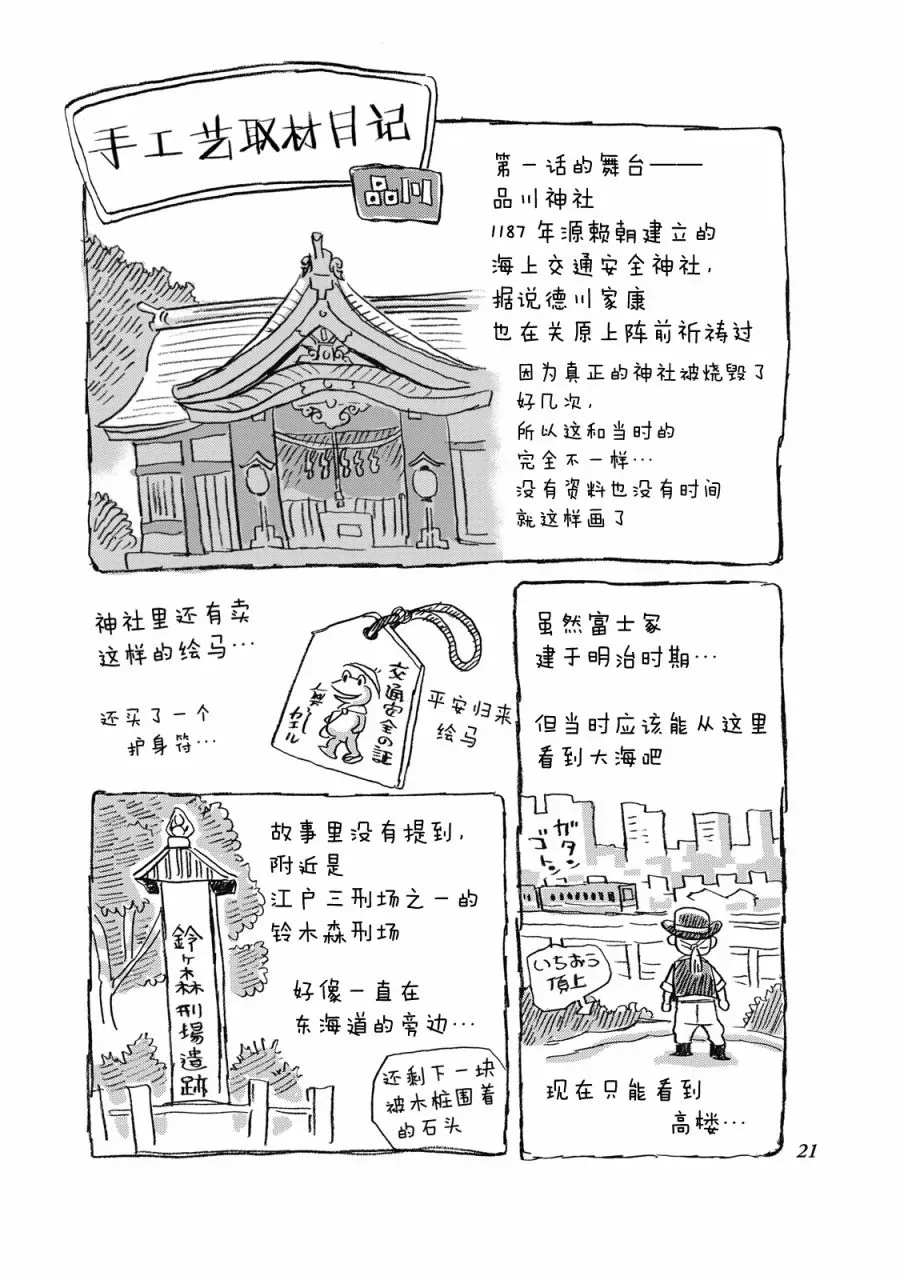 手工艺取材日记
品川
第一话的舞台——
品川神社
1187年源赖朝建立的
海上交通安全神社,
据说德川家康
也在关原上阵前祈祷过
因为真正的神社被烧毁了
好几次,
所以这和当时的
完全不一样…
没有资料也没有时间
就这样画了
神社里还有卖
这样的绘马…
还买了一个
护身符…
交通安全の証
カエル
平安归来
绘马
虽然富士冢
建于明治时期…
但当时应该能从这里
看到大海吧
ガタン
ゴトン
いちおう
頂上
现在只能看到
高楼…
故事里没有提到,
附近是
江户三刑场之一的
铃木森刑场
好像一直在
东海道的旁边…
鈴ヶ森刑場遺跡
还剩下一块
被木桩围着
的石头
21